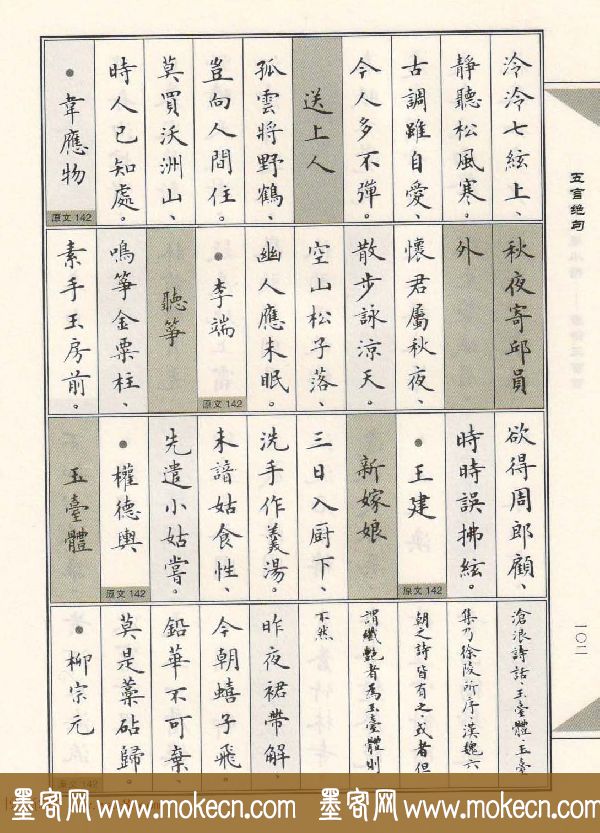 五言绝句
一〇二
泠泠七絃上、
靜聽松風寒。
古調雖自愛、
今人多不彈。
送上人
孤雲將野鶴、
豈向人間住。
莫買沃洲山、
時人已知處。
●韋應物
原文142
秋夜寄邱員
外
懷君屬秋夜、
散步詠涼天。
空山松子落、
幽人應未眠。
●李端
原文142
聽箏
鳴箏金粟柱、
素手玉房前。
欲得周郎顧、
時時誤拂絃。
●王建
原文142
新嫁娘
三日入厨下、
洗手作羹湯。
未諳姑食性、
先遣小姑嘗。
●權德輿
原文142
玉臺體
滄浪詩話、玉臺體、玉臺
集乃徐陵所序、漢魏六
朝之詩皆有之、或者但
謂纖艷者為玉臺體則
不然
昨夜裙帶解、
今朝蟢子飛。
鉛華不可棄、
莫是藁砧歸。
●柳宗元
原文142
墨客网 www.mokecn.com 墨客网 www.mokecn.com